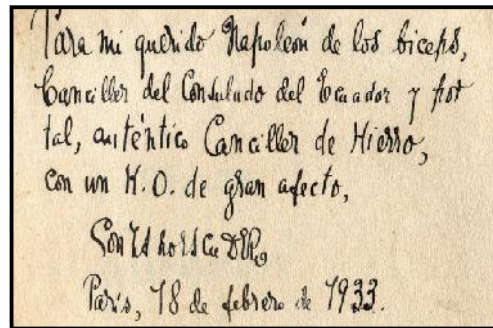 Para mi querido Napoleón de los biceps,
Canciller del Consulado del Ecuador y por
tal, auténtico Canciller de Hierro,
con un K.O. de gran afecto,
París, 18 de febrero de 1933.